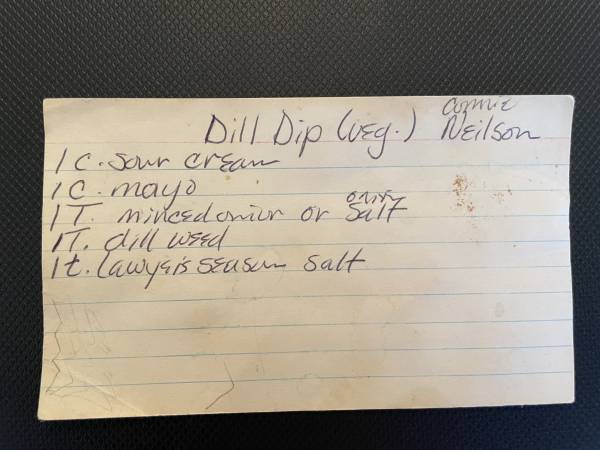 Dill Dip (veg.) Connie Neilson
1 c. sour cream
1 c. mayo
1 T. minced onion or onion Salt
1T. dill weed
1 t. Lawyeis season salt